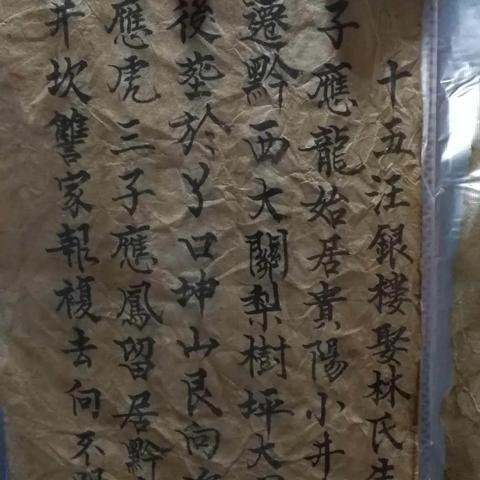 十五汪銀樓娶林氏生
子應龍始居貴陽小井
遷黔西大關梨樹坪大
後塟於丫口坤山艮向
應虎三子應鳳留居黔
井坎讐家報複去向不